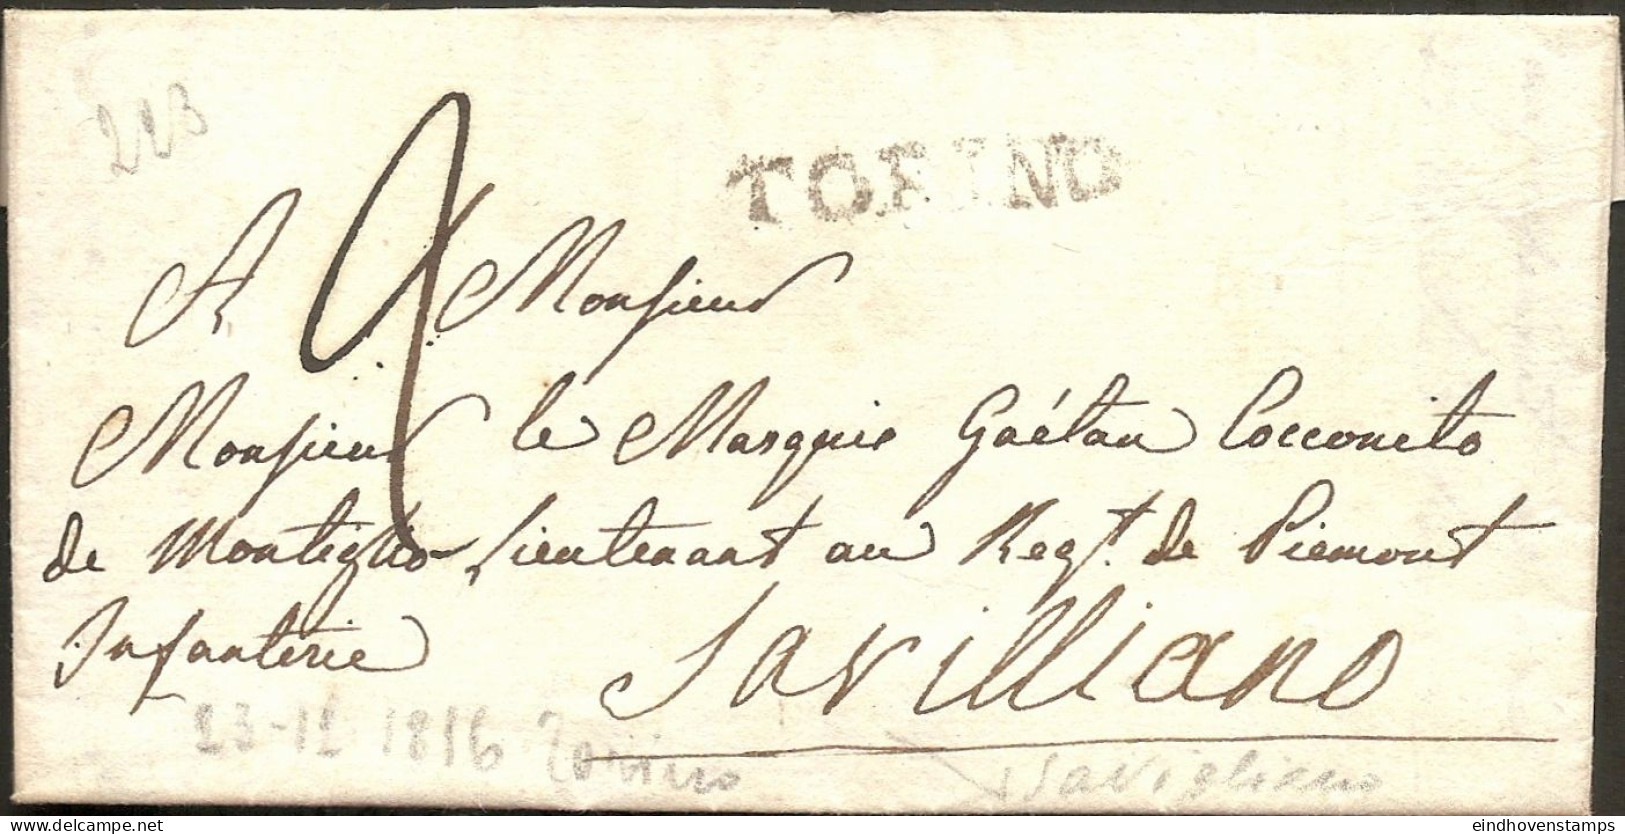 223
TORINO
2
A Monsieur
Monsieur le Marquis Gaëtan Cocconito
de Montiglio, Lieutenant au Regt. de Piemont
Infanterie
Savilliano
23-12 1816 Torino
Savigliano
eindhovenstamps